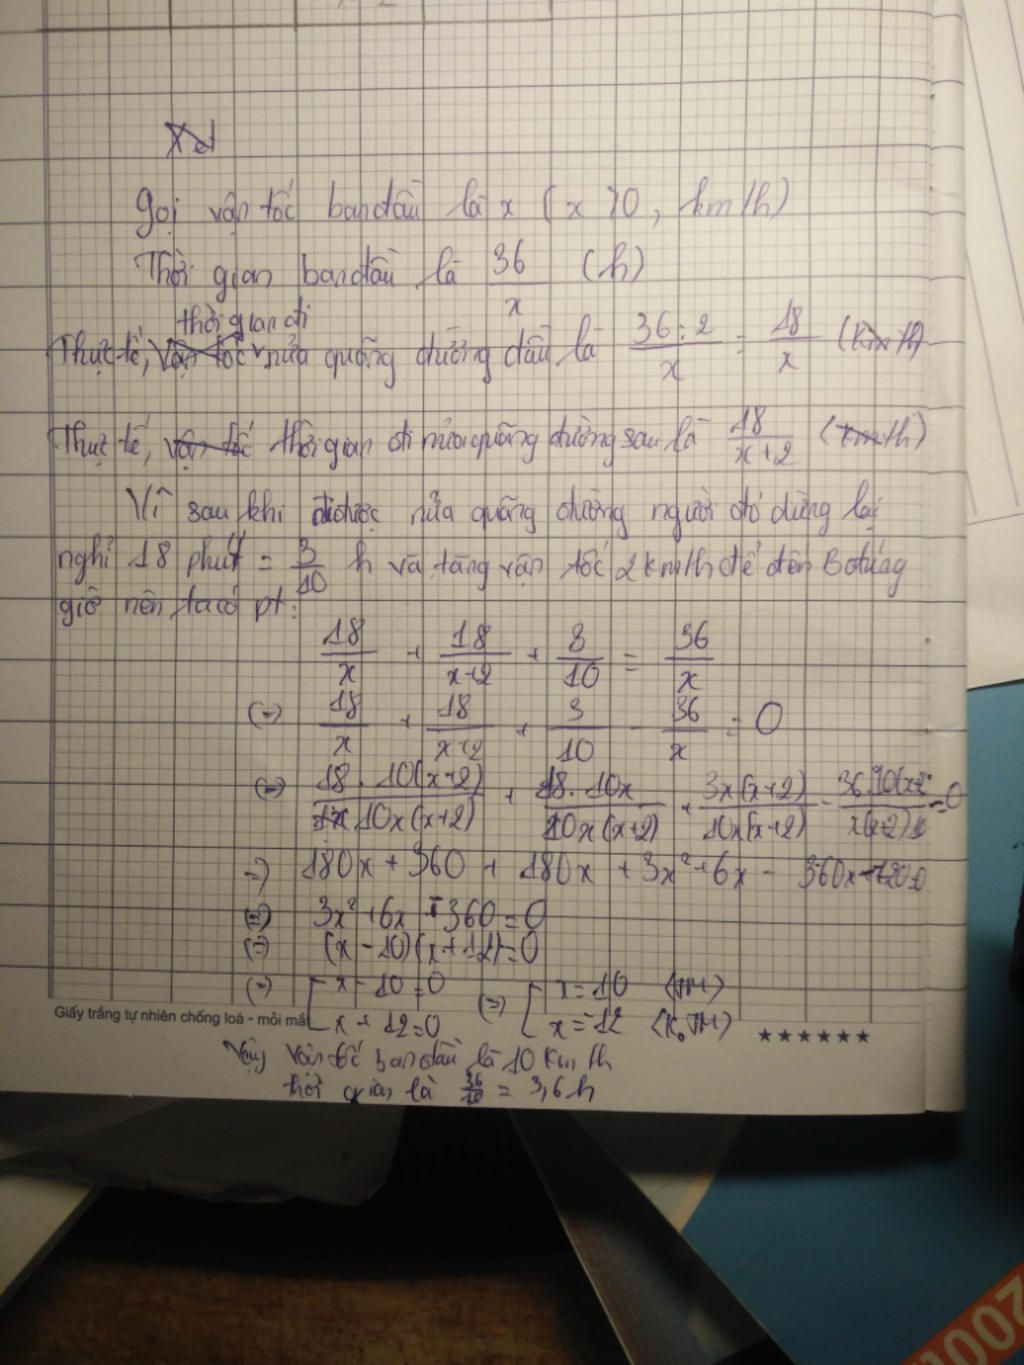 Gọi vận tốc ban đầu là x ( x > 0 , km/h)
Thời gian ban đầu là 36/x (h)
thời gian đi
Thực tế, vận tốc nửa quãng đường đầu là 36:2/x = 18/x (km/h)
Thực tế, vận tốc thời gian đi nửa quãng đường sau là 18/x+2 (km/h)
Vì sau khi đi được nửa quãng đường người đó dừng lại
nghỉ 18 phút = 3/10 h và tăng vận tốc 2km/h để đến B đúng
giờ nên ta có pt:
18/x + 18/x+2 + 3/10 = 36/x
(=) 18/x + 18/x+2 + 3/10 - 36/x = 0
(=) 18.10(x+2)/10x(x+2) + 18.10x/10x(x+2) + 3x(x+2)/10x(x+2) - 36.10(x+2)/x(x+2)10 = 0
=) 180x + 360 + 180x + 3x² + 6x - 360x - 720 = 0
(=) 3x² + 6x - 360 = 0
(=) (x - 10)(x + 12) = 0
(=) [ x - 10 = 0 (=) [ x = 10 (TM)
x + 12 = 0 x = -12 (K.TM)
Giấy trắng tự nhiên chống loá - mỏi mắt ★★★★★★
Vậy vận tốc ban đầu là 10 km/h
thời gian là 36/10 = 3,6 h
2001